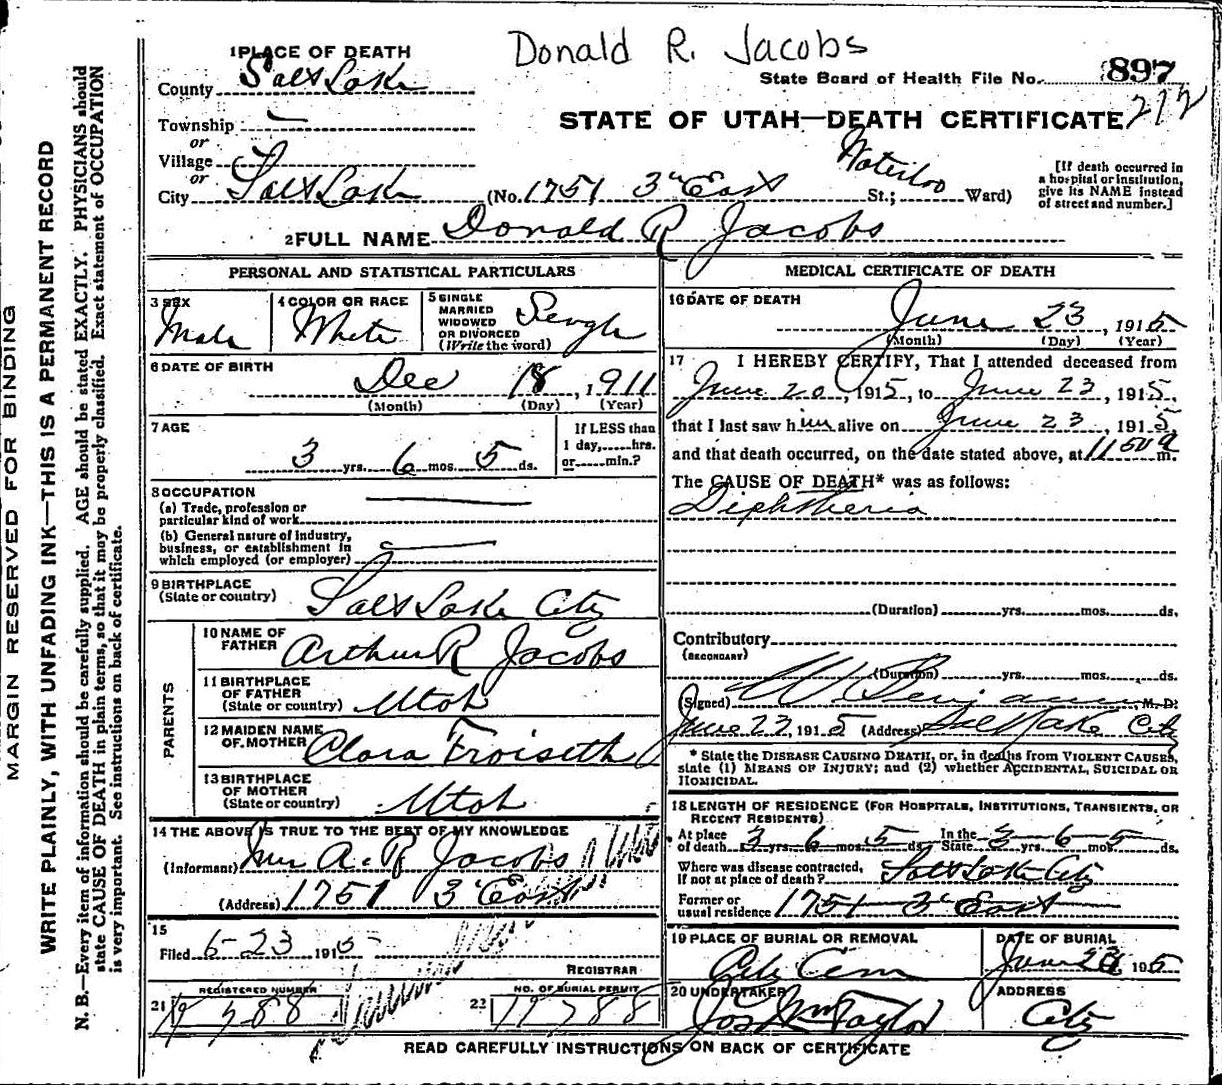 Donald R. Jacobs
1 PLACE OF DEATH
State Board of Health File No. 897
County Salt Lake
212
STATE OF UTAH—DEATH CERTIFICATE
Township
or
Village
or
City Salt Lake (No. 1751 3rd East St.; Waterloo Ward)
[If death occurred in
a hospital or institution,
give its NAME instead
of street and number.]
2 FULL NAME Donald R Jacobs
PERSONAL AND STATISTICAL PARTICULARS
3 SEX
Male
4 COLOR OR RACE
White
5 SINGLE
MARRIED
WIDOWED
OR DIVORCED
(Write the word)
Single
6 DATE OF BIRTH
Dec 18, 1911
(Month) (Day) (Year)
7 AGE
3 yrs. 6 mos. 5 ds.
If LESS than
1 day,......hrs.
or......min.?
8 OCCUPATION
(a) Trade, profession or
particular kind of work
(b) General nature of industry,
business, or establishment in
which employed (or employer)
9 BIRTHPLACE
(State or country)
Salt Lake City
PARENTS
10 NAME OF
FATHER
Arthur R Jacobs
11 BIRTHPLACE
OF FATHER
(State or country)
Utah
12 MAIDEN NAME
OF MOTHER
Clara Froiseth
13 BIRTHPLACE
OF MOTHER
(State or country)
Utah
14 THE ABOVE IS TRUE TO THE BEST OF MY KNOWLEDGE
(Informant) Mrs A. R Jacobs
(Address) 1751 3rd East
15
Filed 6-23 1915
REGISTRAR
REGISTERED NUMBER
21
NO. OF BURIAL PERMIT
22
MEDICAL CERTIFICATE OF DEATH
16 DATE OF DEATH
June 23, 1915
(Month) (Day) (Year)
17 I HEREBY CERTIFY, That I attended deceased from
June 20, 1915, to June 23, 1915,
that I last saw him alive on June 23, 1915,
and that death occurred, on the date stated above, at 11 50 a m.
The CAUSE OF DEATH* was as follows:
Diphtheria
(Duration) yrs. mos. ds.
Contributory
(SECONDARY)
(Duration) yrs. mos. ds.
(Signed) M. D.
June 23, 1915 (Address) Salt Lake City
* State the DISEASE CAUSING DEATH, or, in deaths from VIOLENT CAUSES,
state (1) MEANS OF INJURY; and (2) whether ACCIDENTAL, SUICIDAL OR
HOMICIDAL.
18 LENGTH OF RESIDENCE (FOR HOSPITALS, INSTITUTIONS, TRANSIENTS, OR
RECENT RESIDENTS)
At place
of death 3 yrs. 6 mos. 5 ds.
In the
State 3 yrs. 6 mos. 5 ds.
Where was disease contracted,
If not at place of death? Salt Lake City
Former or
usual residence 1751 3rd East
19 PLACE OF BURIAL OR REMOVAL
City Cem
DATE OF BURIAL
June 1915
20 UNDERTAKER
Jos Wm Taylor
ADDRESS
City
READ CAREFULLY INSTRUCTIONS ON BACK OF CERTIFICATE
MARGIN RESERVED FOR BINDING
WRITE PLAINLY, WITH UNFADING INK—THIS IS A PERMANENT RECORD
N. B.—Every item of information should be carefully supplied. AGE should be stated EXACTLY. PHYSICIANS should
state CAUSE OF DEATH in plain terms, so that it may be properly classified. Exact statement of OCCUPATION
is very important. See instructions on back of certificate.